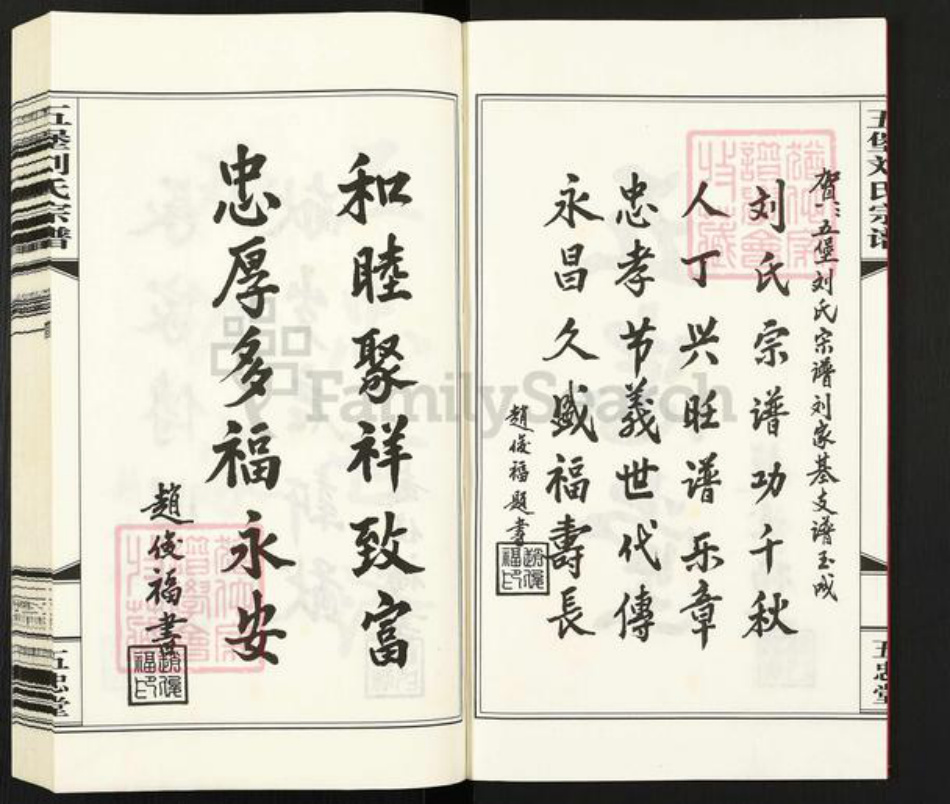 五堡刘氏宗谱
五忠堂
贺：五堡刘氏宗谱刘家基支谱玉成
刘氏宗谱功千秋
人丁兴旺谱乐章
忠孝节義世代傳
永昌久盛福壽長
趙俊福题書
趙俊福印
和睦聚祥致富
忠厚多福永安
趙俊福書
趙俊福印
五堡刘氏宗谱
五忠堂
FamilySearch